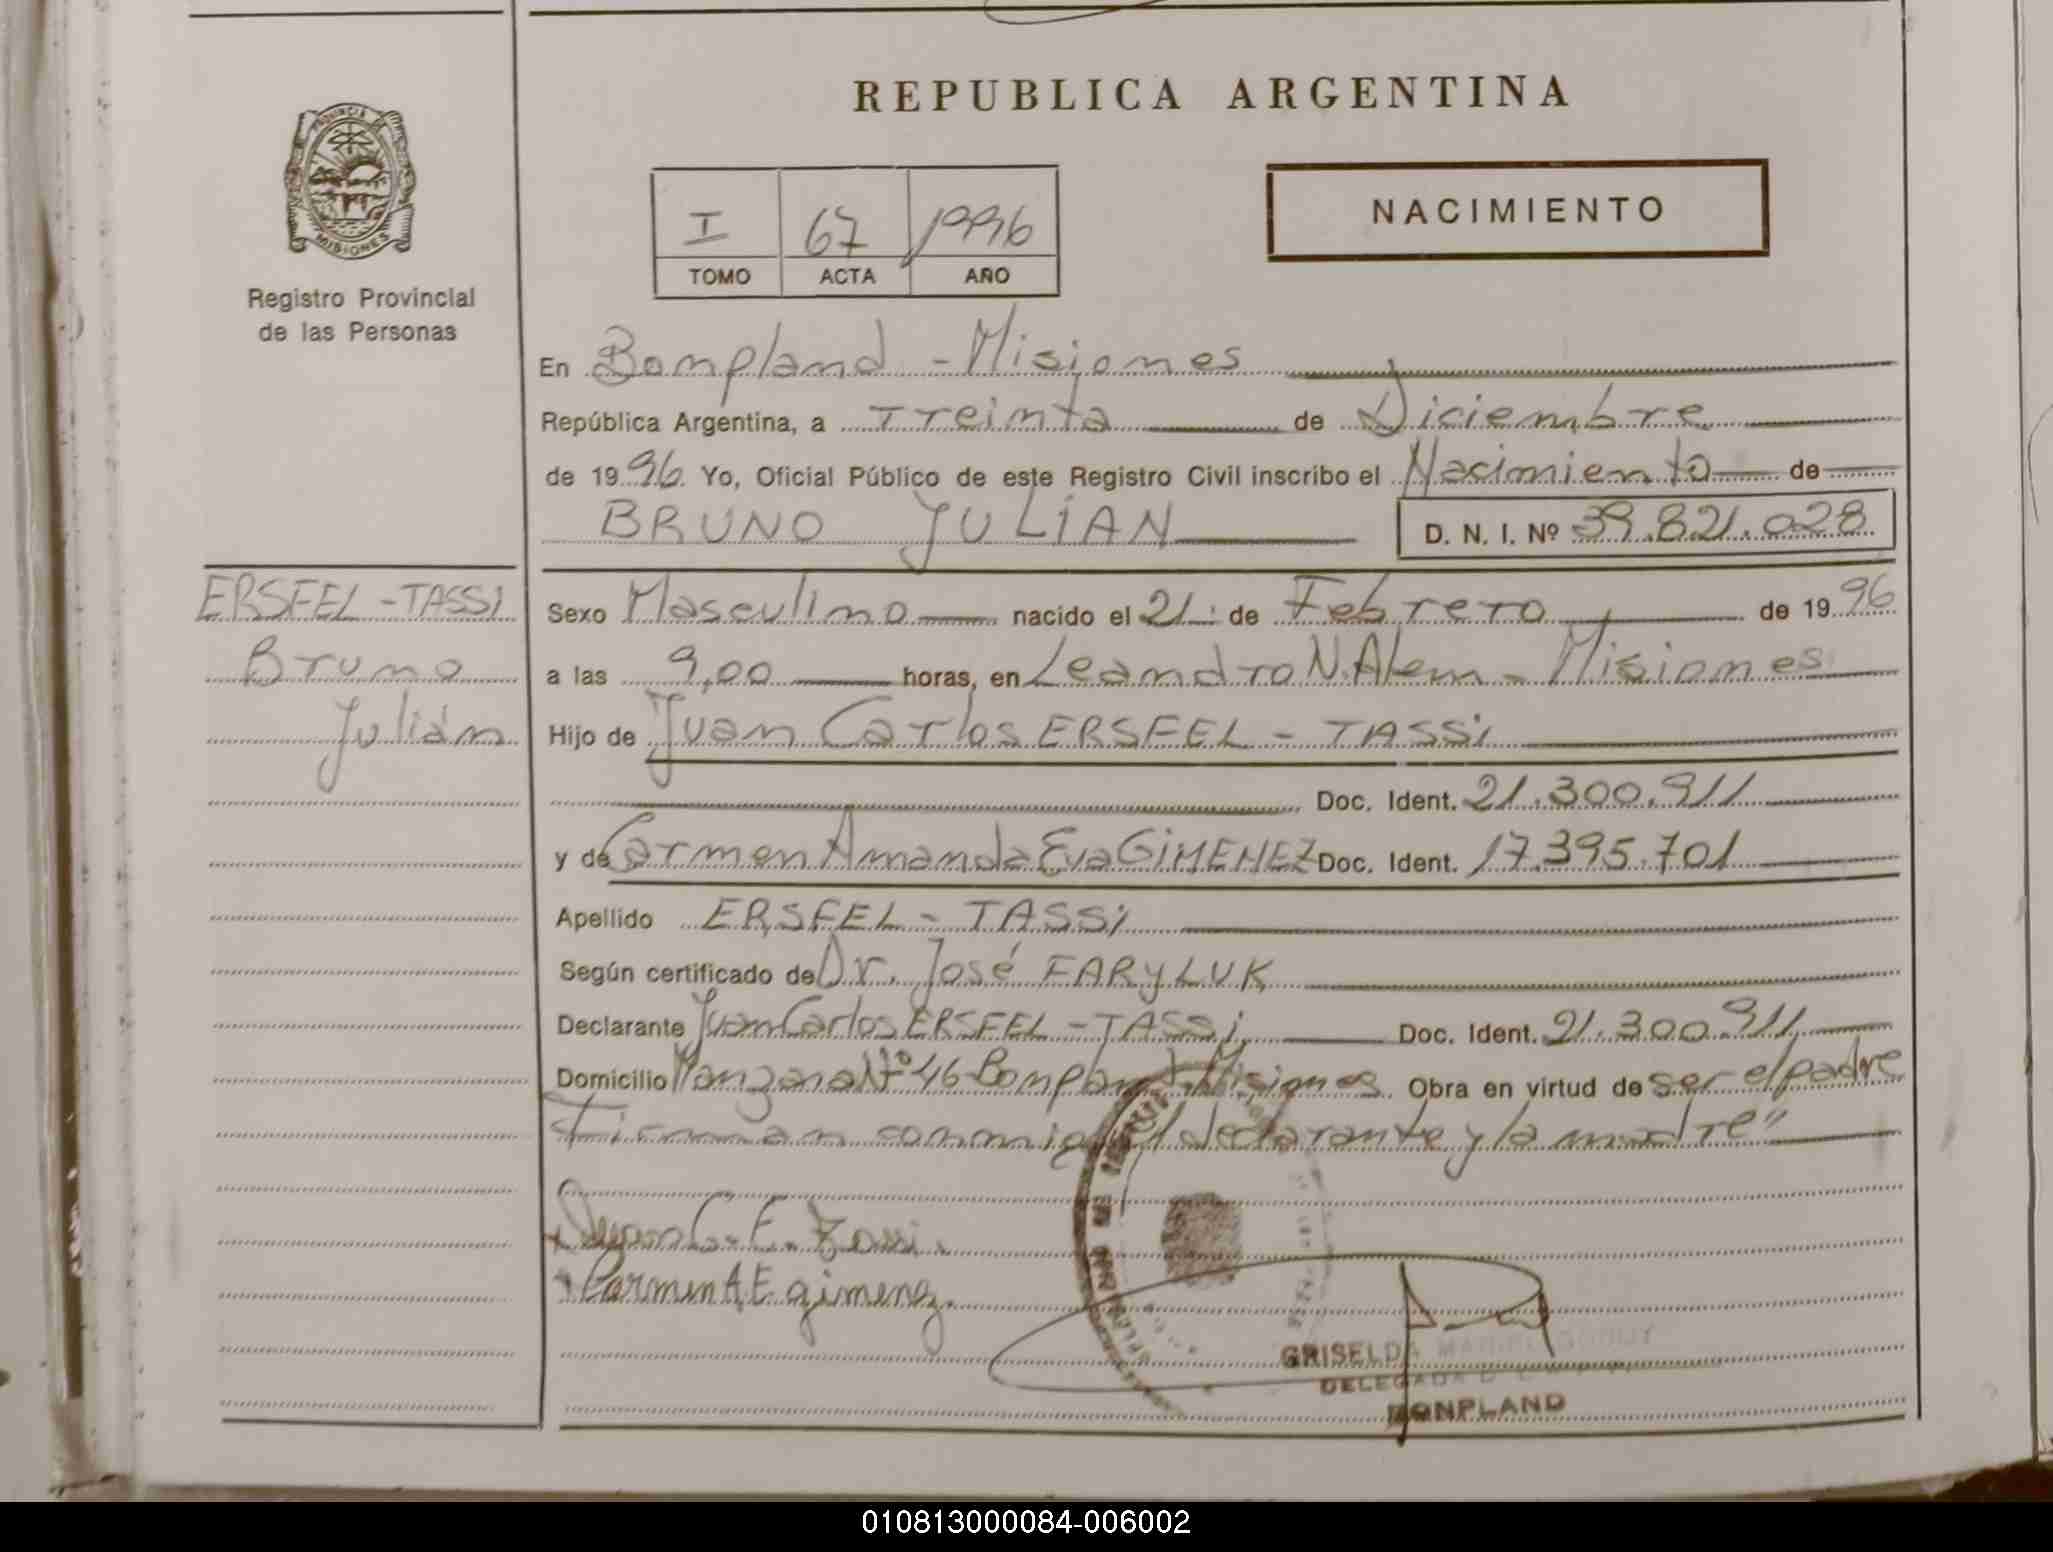 REPUBLICA ARGENTINA
PROVINCIA DE
MISIONES
Registro Provincial
de las Personas
I 67 1996
TOMO ACTA AÑO
NACIMIENTO
En Bonpland - Misiones
República Argentina, a Treinta de Diciembre
de 1996 Yo, Oficial Público de este Registro Civil inscribo el Nacimiento de
BRUNO JULIAN D. N. I. Nº 39.821.028
ERSFEL - TASSI
Bruno
Julián
Sexo Masculino nacido el 21 de Febrero de 1996
a las 9,00 horas, en Leandro N. Alem - Misiones
Hijo de Juan Carlos ERSFEL - TASSI
Doc. Ident. 21.300.911
y de Carmen Amanda Eva GIMENEZ Doc. Ident. 17.395.701
Apellido ERSFEL - TASSI
Según certificado de Dr. José FARYLUK
Declarante Juan Carlos ERSFEL - TASSI Doc. Ident. 21.300.911
Domicilio Manzana Nº 46 Bonpland Misiones Obra en virtud de ser el padre
Firman conmigo el declarante y la madre"
C. E. Tassi.
Carmen A E gimenez.
GRISELDA
DELEGADA
BONPLAND
010813000084-006002